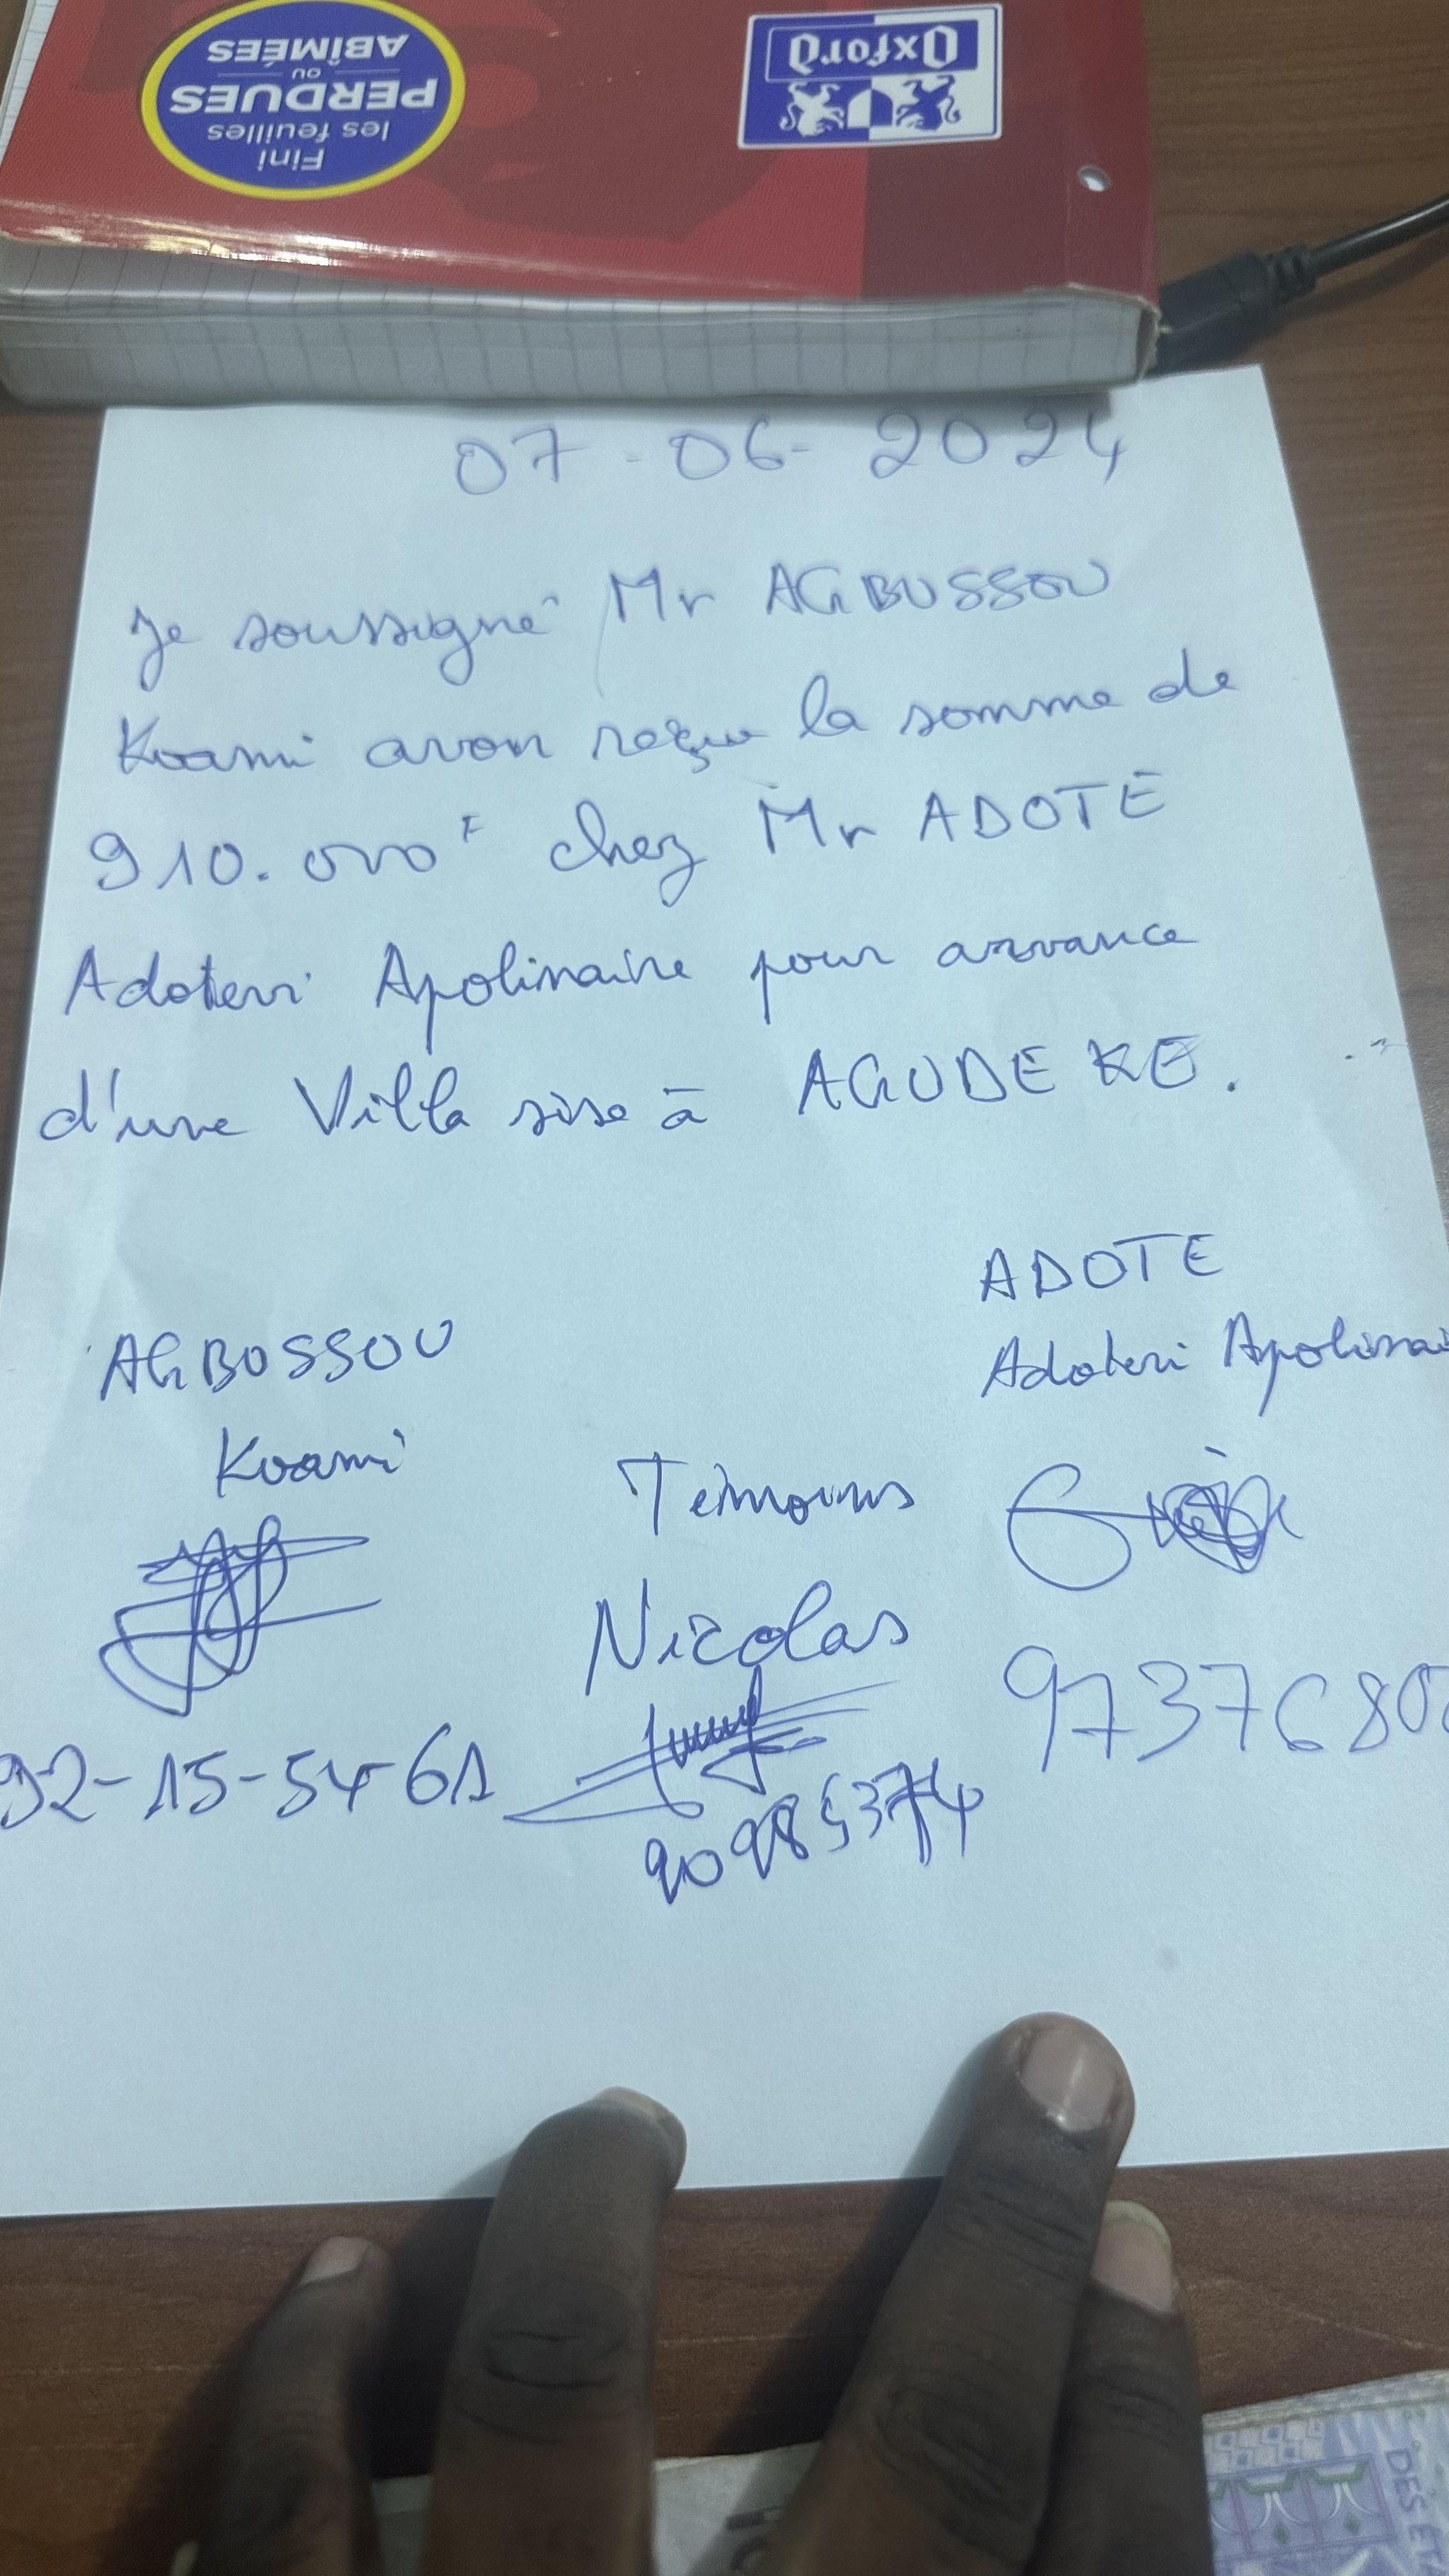 Fini
les feuilles
PERDUES
ou
ABÎMÉES
Oxford
07-06-2024
Je soussigné Mr AGBOSSOU
Koami avon reçu la somme de
910.000 F chez Mr ADOTE
Adoteri Apolinaire pour avance
d'une Villa sise à AGODEKE.
ADOTE
Adoteri Apolinai
AGBOSSOU
Koami
Temouns
Nicolas
92-15-54-61
9737680
90985374
DES ET